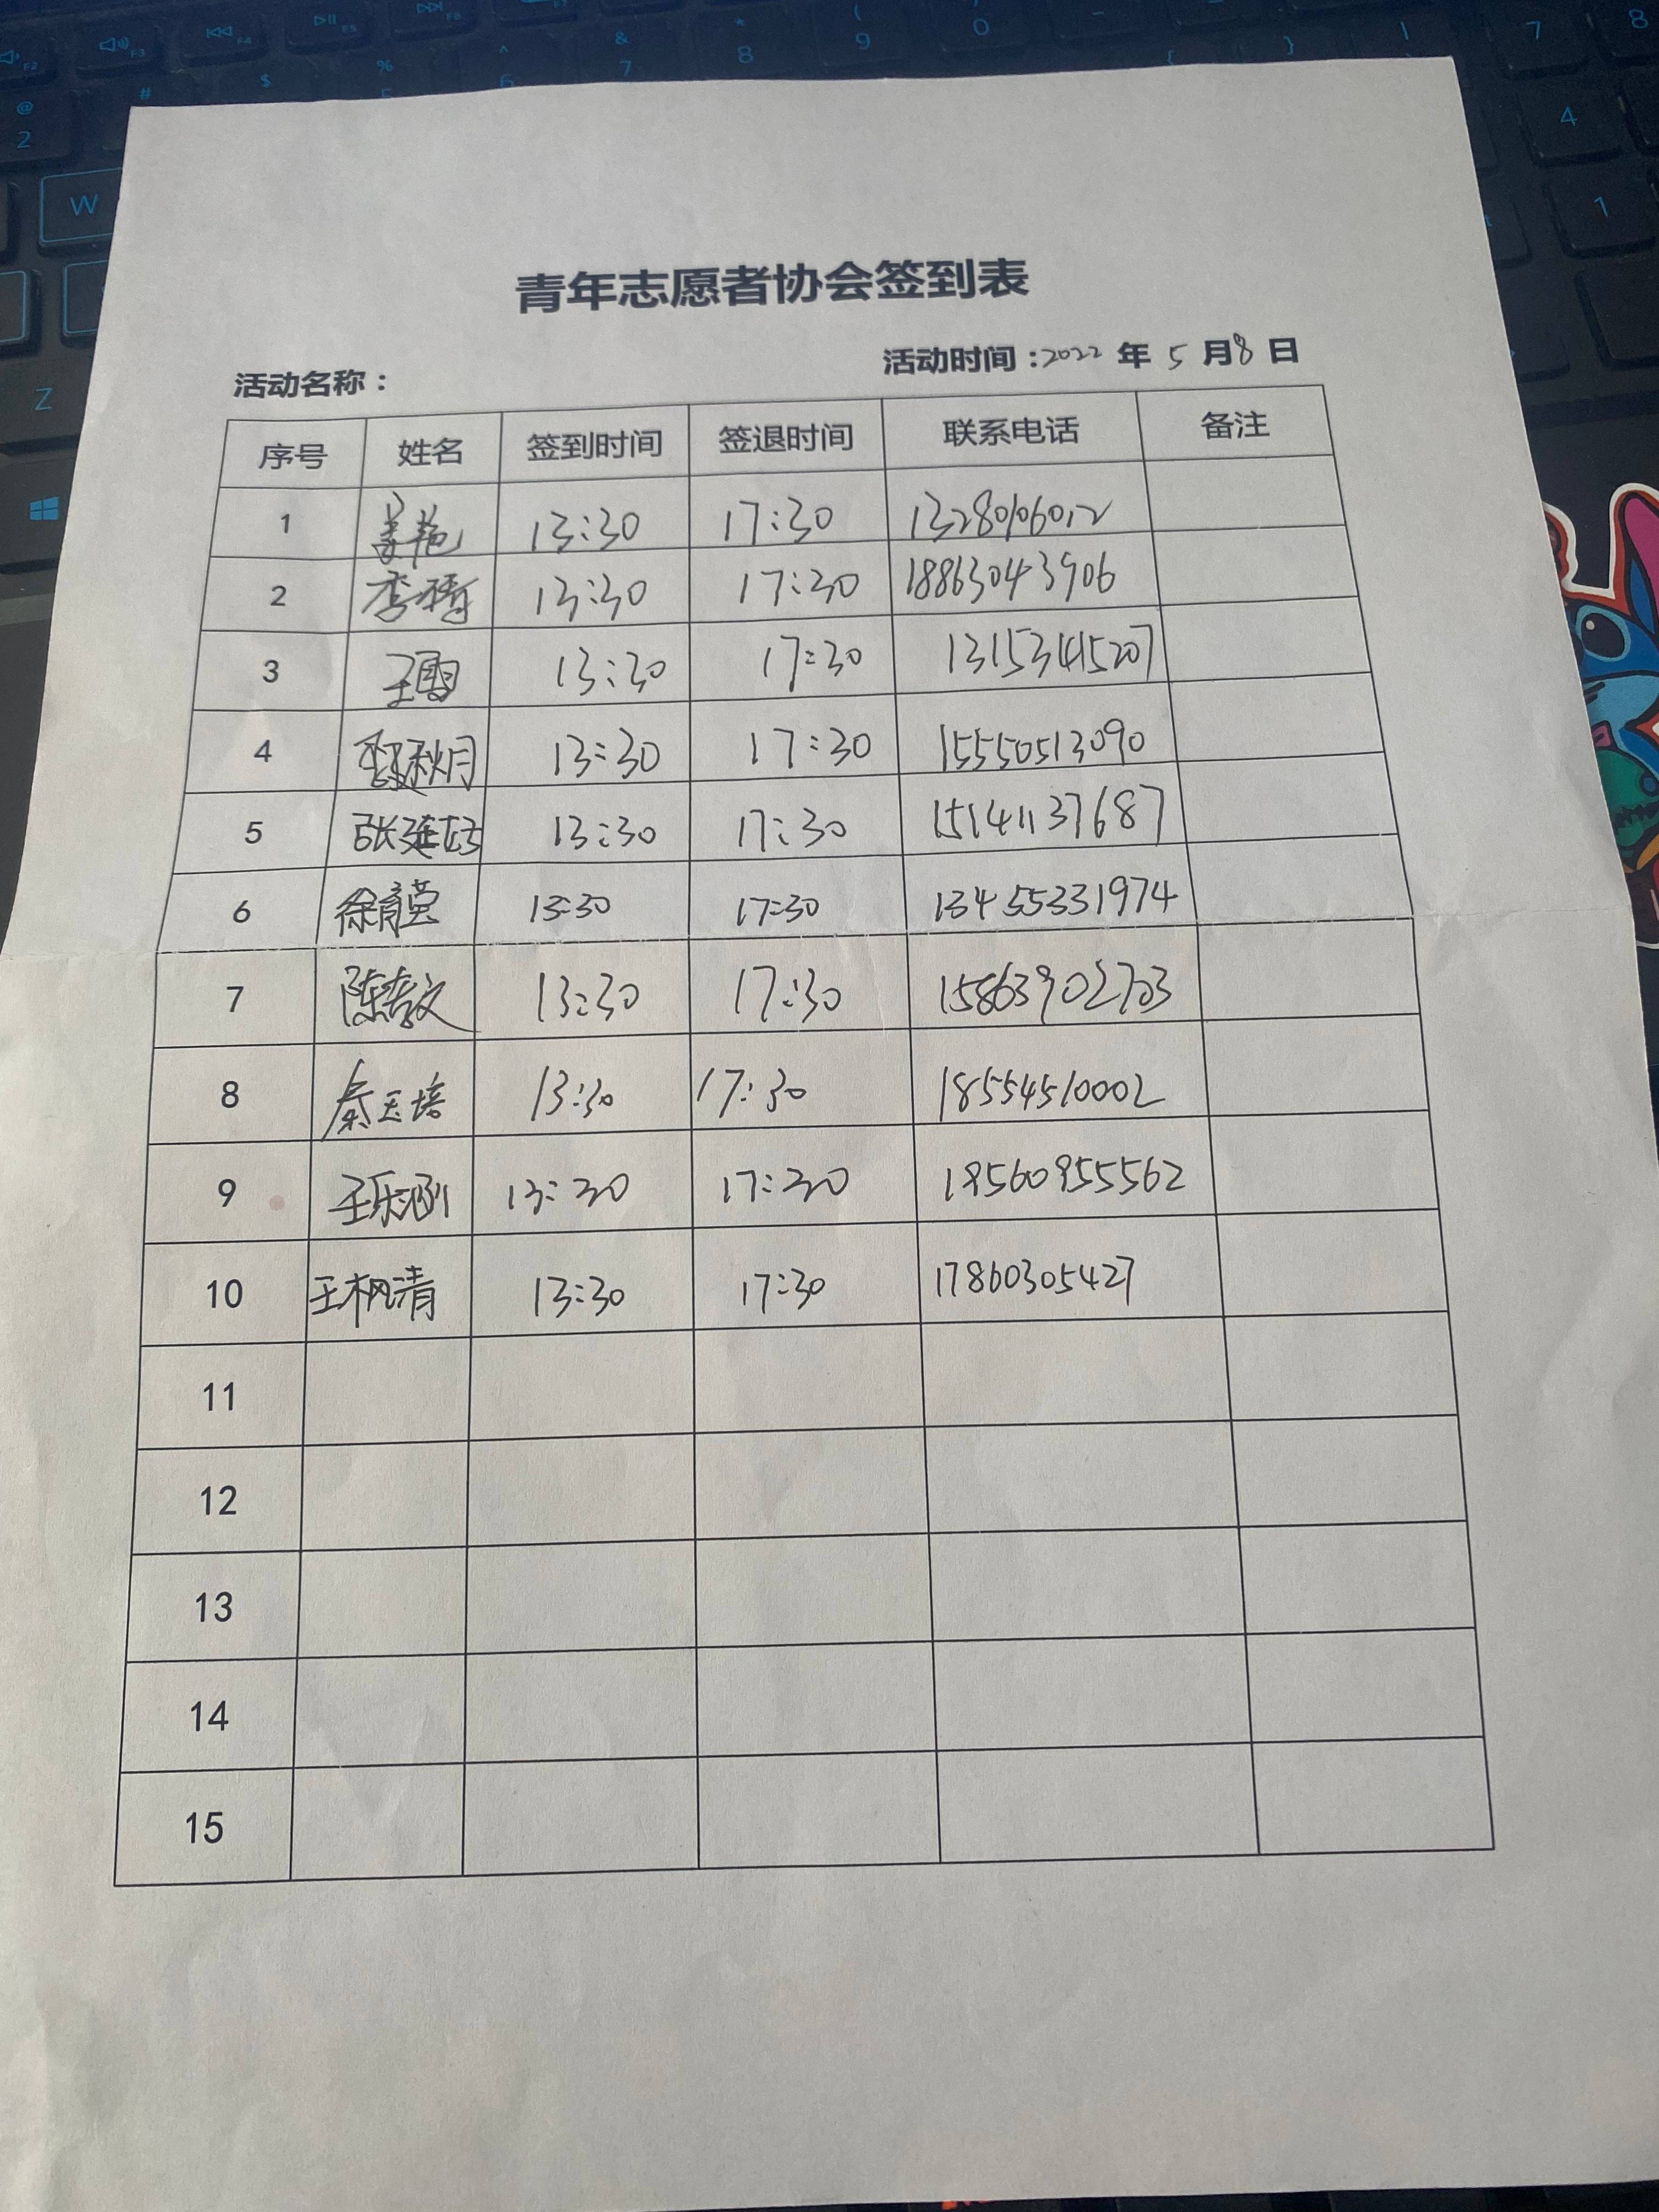 青年志愿者协会签到表
活动名称： 活动时间：2022 年 5 月 8 日
序号 姓名 签到时间 签退时间 联系电话 备注
1 姜艳 13:30 17:30 13280106012
2 李 13:30 17:30 18863043906
3 王雪 13:30 17:30 13153415207
4 秋月 13:30 17:30 15550513090
5 张延 13:30 17:30 15141137687
6 徐育莹 13:30 17:30 13455331974
7 陈孝文 13:30 17:30 15863902703
8 秦玉培 13:30 17:30 18554510002
9 王乐 13:30 17:30 18560855562
10 王枫清 13:30 17:30 17860305427
11
12
13
14
15